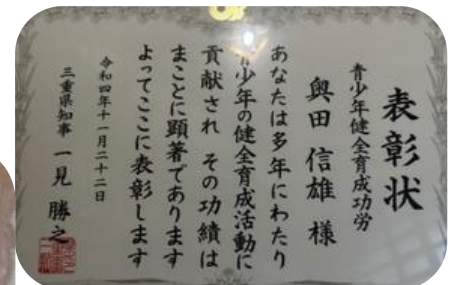 表彰状
青少年健全育成功労
奥田 信雄 様
あなたは多年にわたり
青少年の健全育成活動に
貢献され その功績は
まことに顕著であります
よってここに表彰します
令和四年十一月二十二日
三重県知事 一見 勝之